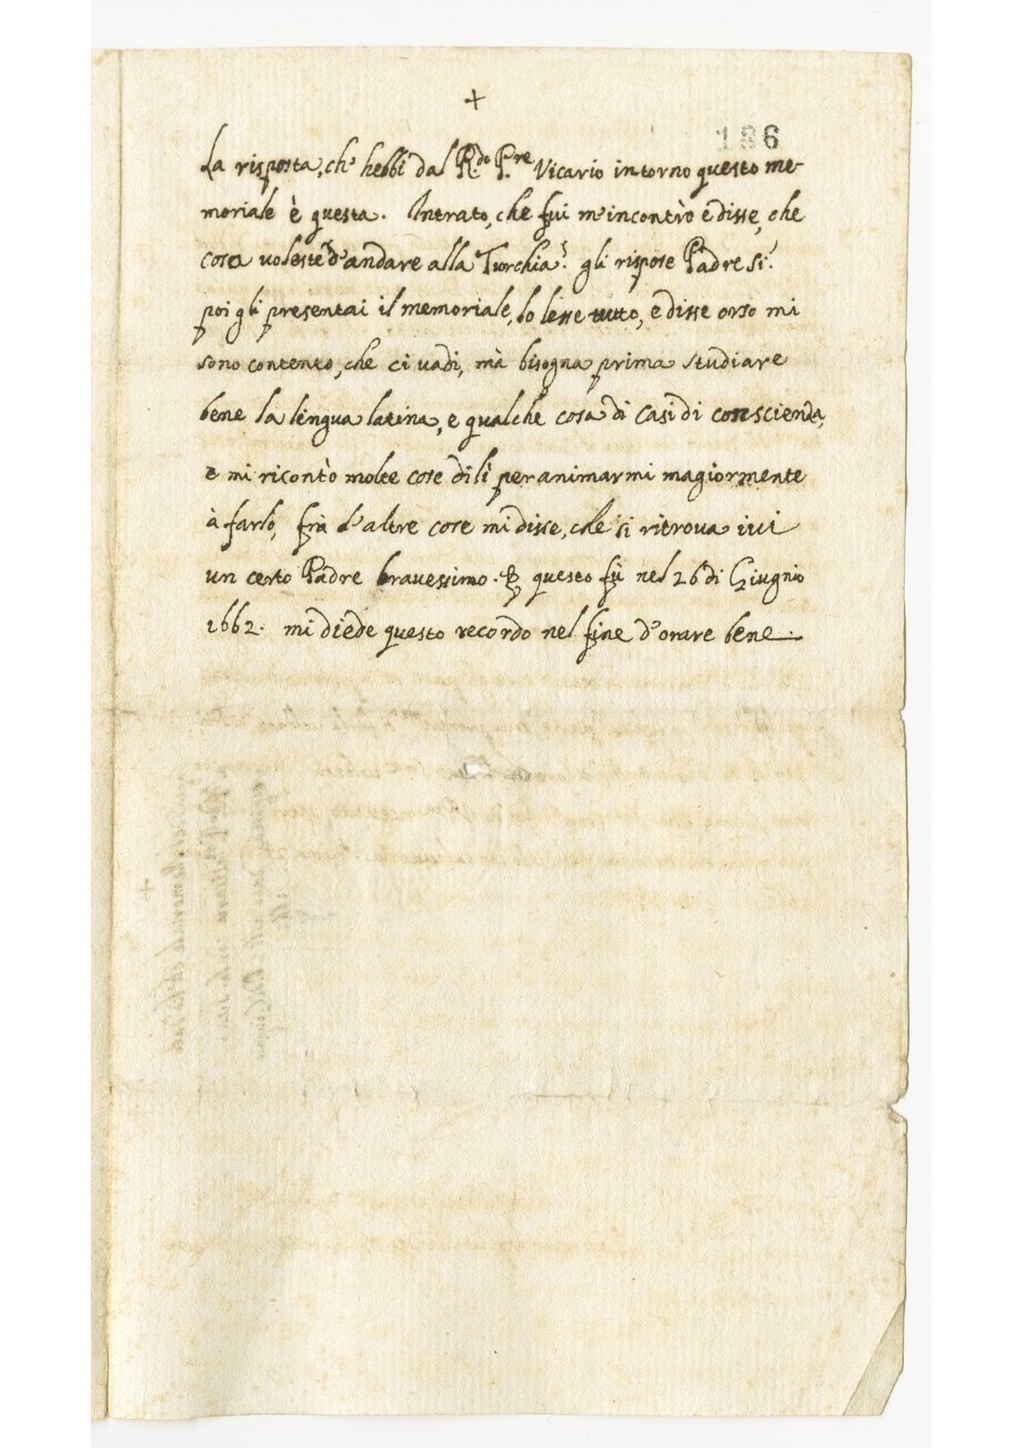 +
186
La risposta, ch' hebbi dal R.do P.re Vicario intorno questo me-
moriale è questa. Intrato, che fui m'incontrò e disse, che
cosa voleste d'andare alla Turchia? gli rispose Padre si.
poi gli presentai il memoriale, lo lesse tutto, e disse orso mi
sono contento, che ci vadi, mà bisogna prima studiare
bene la lengua latina, e qualche cosa di casi di conscienza,
e mi ricontò molte cose di lì per animarmi magiormente
à farlo, frà l'altre cose mi disse, che si ritrova ivi
un certo Padre bravessimo. & questo fù nel 26 di Giugnio
1662. mi diede questo recordo nel fine d'orare bene.